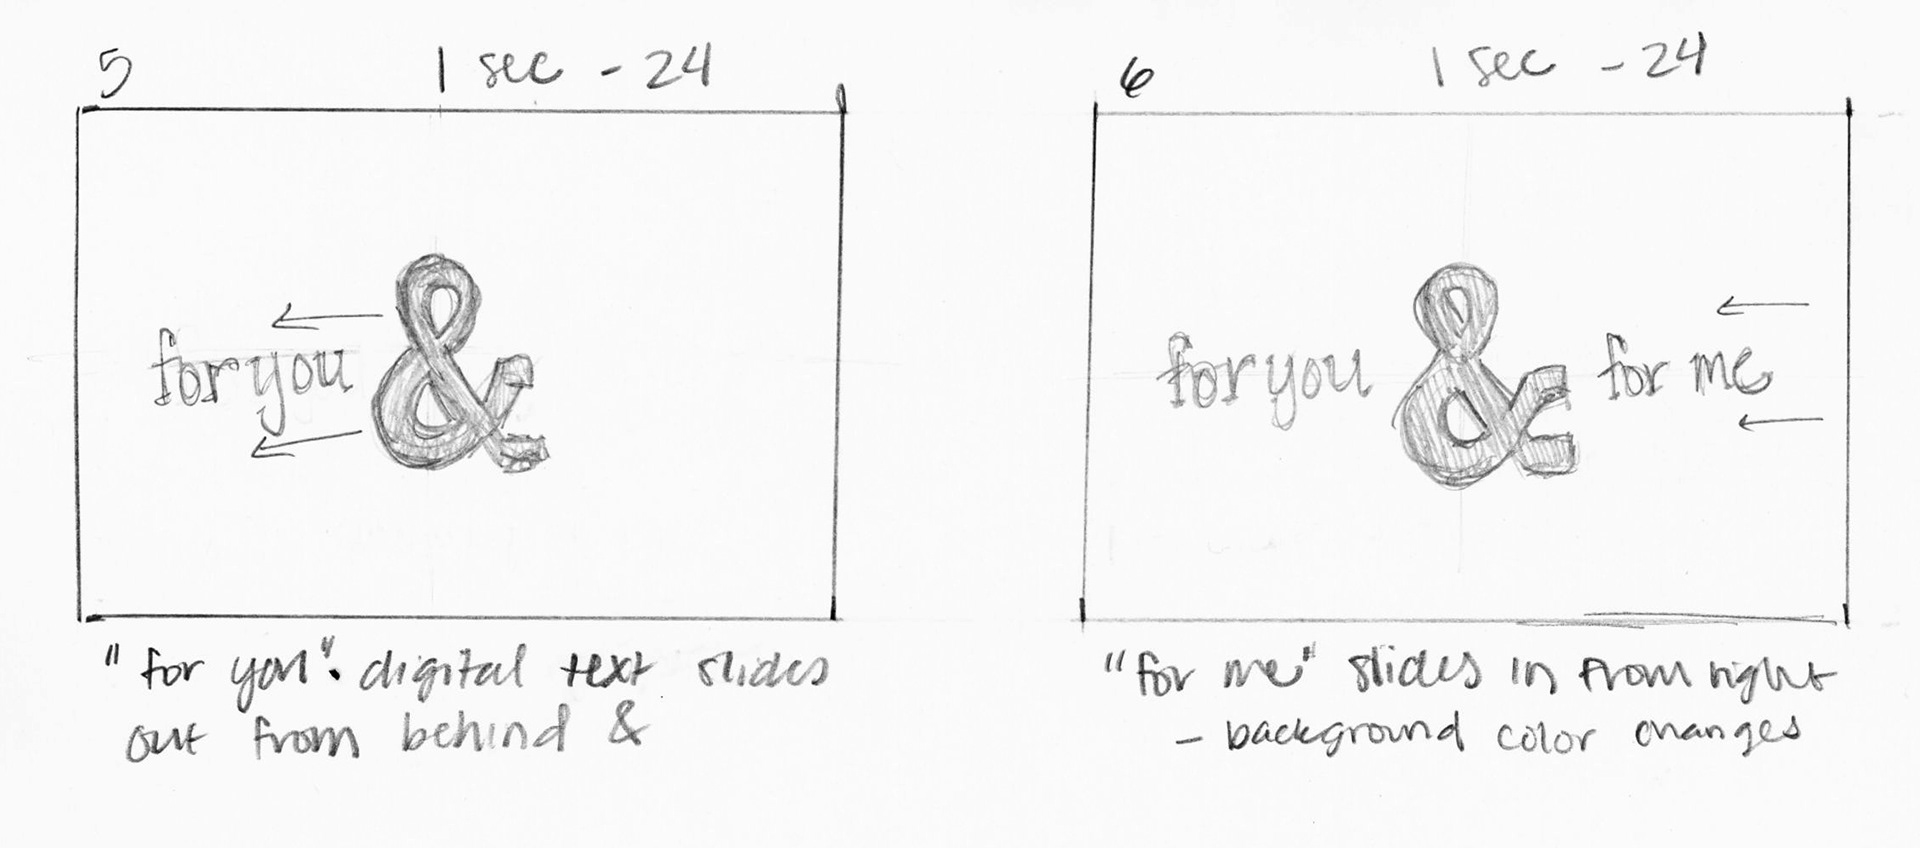 5
1 sec - 24
for you &
"for you". digital text slides
out from behind &
6
1 sec - 24
for you & for me
"for me" slides in from right
- background color changes